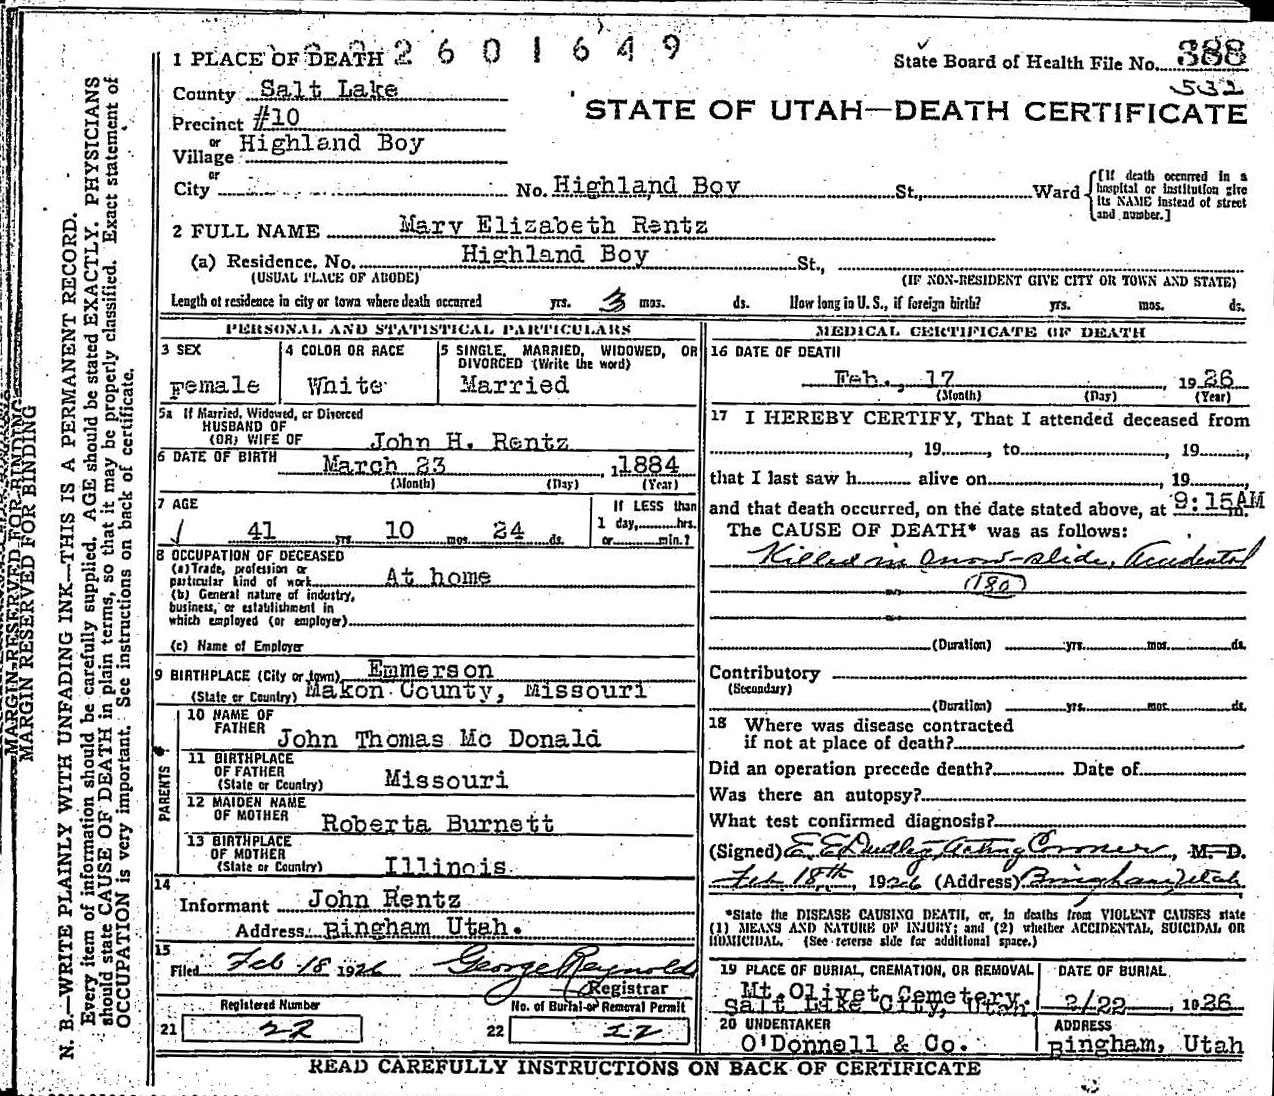 2601649
State Board of Health File No. 388
532
1 PLACE OF DEATH
County Salt Lake
STATE OF UTAH—DEATH CERTIFICATE
Precinct #10
or
Village Highland Boy
or
City No. Highland Boy St., Ward
[If death occurred in a hospital or institution give its NAME instead of street and number.]
2 FULL NAME Mary Elizabeth Rentz
(a) Residence. No. Highland Boy St.,
(USUAL PLACE OF ABODE) (IF NON-RESIDENT GIVE CITY OR TOWN AND STATE)
Length of residence in city or town where death occurred yrs. 3 mos. ds. How long in U. S., if foreign birth? yrs. mos. ds.
PERSONAL AND STATISTICAL PARTICULARS
3 SEX
Female
4 COLOR OR RACE
White
5 SINGLE, MARRIED, WIDOWED, OR
DIVORCED (Write the word)
Married
5a If Married, Widowed, or Divorced
HUSBAND OF
(OR) WIFE OF John H. Rentz
6 DATE OF BIRTH March 23, 1884
(Month) (Day) (Year)
7 AGE
41 yrs. 10 mos. 24 ds.
If LESS than
1 day, hrs.
or min.?
8 OCCUPATION OF DECEASED
(a) Trade, profession or
particular kind of work At home
(b) General nature of industry,
business, or establishment in
which employed (or employer)
(c) Name of Employer
9 BIRTHPLACE (City or town) Emmerson
(State or Country) Makon County, Missouri
PARENTS
10 NAME OF
FATHER John Thomas Mc Donald
11 BIRTHPLACE
OF FATHER
(State or Country) Missouri
12 MAIDEN NAME
OF MOTHER Roberta Burnett
13 BIRTHPLACE
OF MOTHER
(State or Country) Illinois
14
Informant John Rentz
Address Bingham Utah.
15
Filed Feb 18 1926 George Reynolds
Registrar
Registered Number
21 22
No. of Burial or Removal Permit
22 22
MEDICAL CERTIFICATE OF DEATH
16 DATE OF DEATH
Feb., 17, 1926
(Month) (Day) (Year)
17 I HEREBY CERTIFY, That I attended deceased from
, 19 , to , 19 ,
that I last saw h alive on , 19 ,
and that death occurred, on the date stated above, at 9:15AM m.
The CAUSE OF DEATH* was as follows:
Killed in snow-slide, Accidental
(180)
(Duration) yrs. mos. ds.
Contributory
(Secondary)
(Duration) yrs. mos. ds.
18 Where was disease contracted
if not at place of death?
Did an operation precede death? Date of
Was there an autopsy?
What test confirmed diagnosis?
(Signed) E. E. Dudley, Acting Coroner, M. D.
Feb 18th, 1926 (Address) Bingham, Utah
*State the DISEASE CAUSING DEATH, or, in deaths from VIOLENT CAUSES state
(1) MEANS AND NATURE OF INJURY; and (2) whether ACCIDENTAL, SUICIDAL OR
HOMICIDAL. (See reverse side for additional space.)
19 PLACE OF BURIAL, CREMATION, OR REMOVAL
Mt. Olivet Cemetery.
Salt Lake City, Utah
DATE OF BURIAL
2/22, 1926
20 UNDERTAKER
O'Donnell & Co.
ADDRESS
Bingham, Utah
READ CAREFULLY INSTRUCTIONS ON BACK OF CERTIFICATE
MARGIN RESERVED FOR BINDING
MARGIN RESERVED FOR BINDING
N. B.—WRITE PLAINLY WITH UNFADING INK—THIS IS A PERMANENT RECORD.
Every item of information should be carefully supplied. AGE should be stated EXACTLY. PHYSICIANS
should state CAUSE OF DEATH in plain terms, so that it may be properly classified. Exact statement of
OCCUPATION is very important. See instructions on back of certificate.